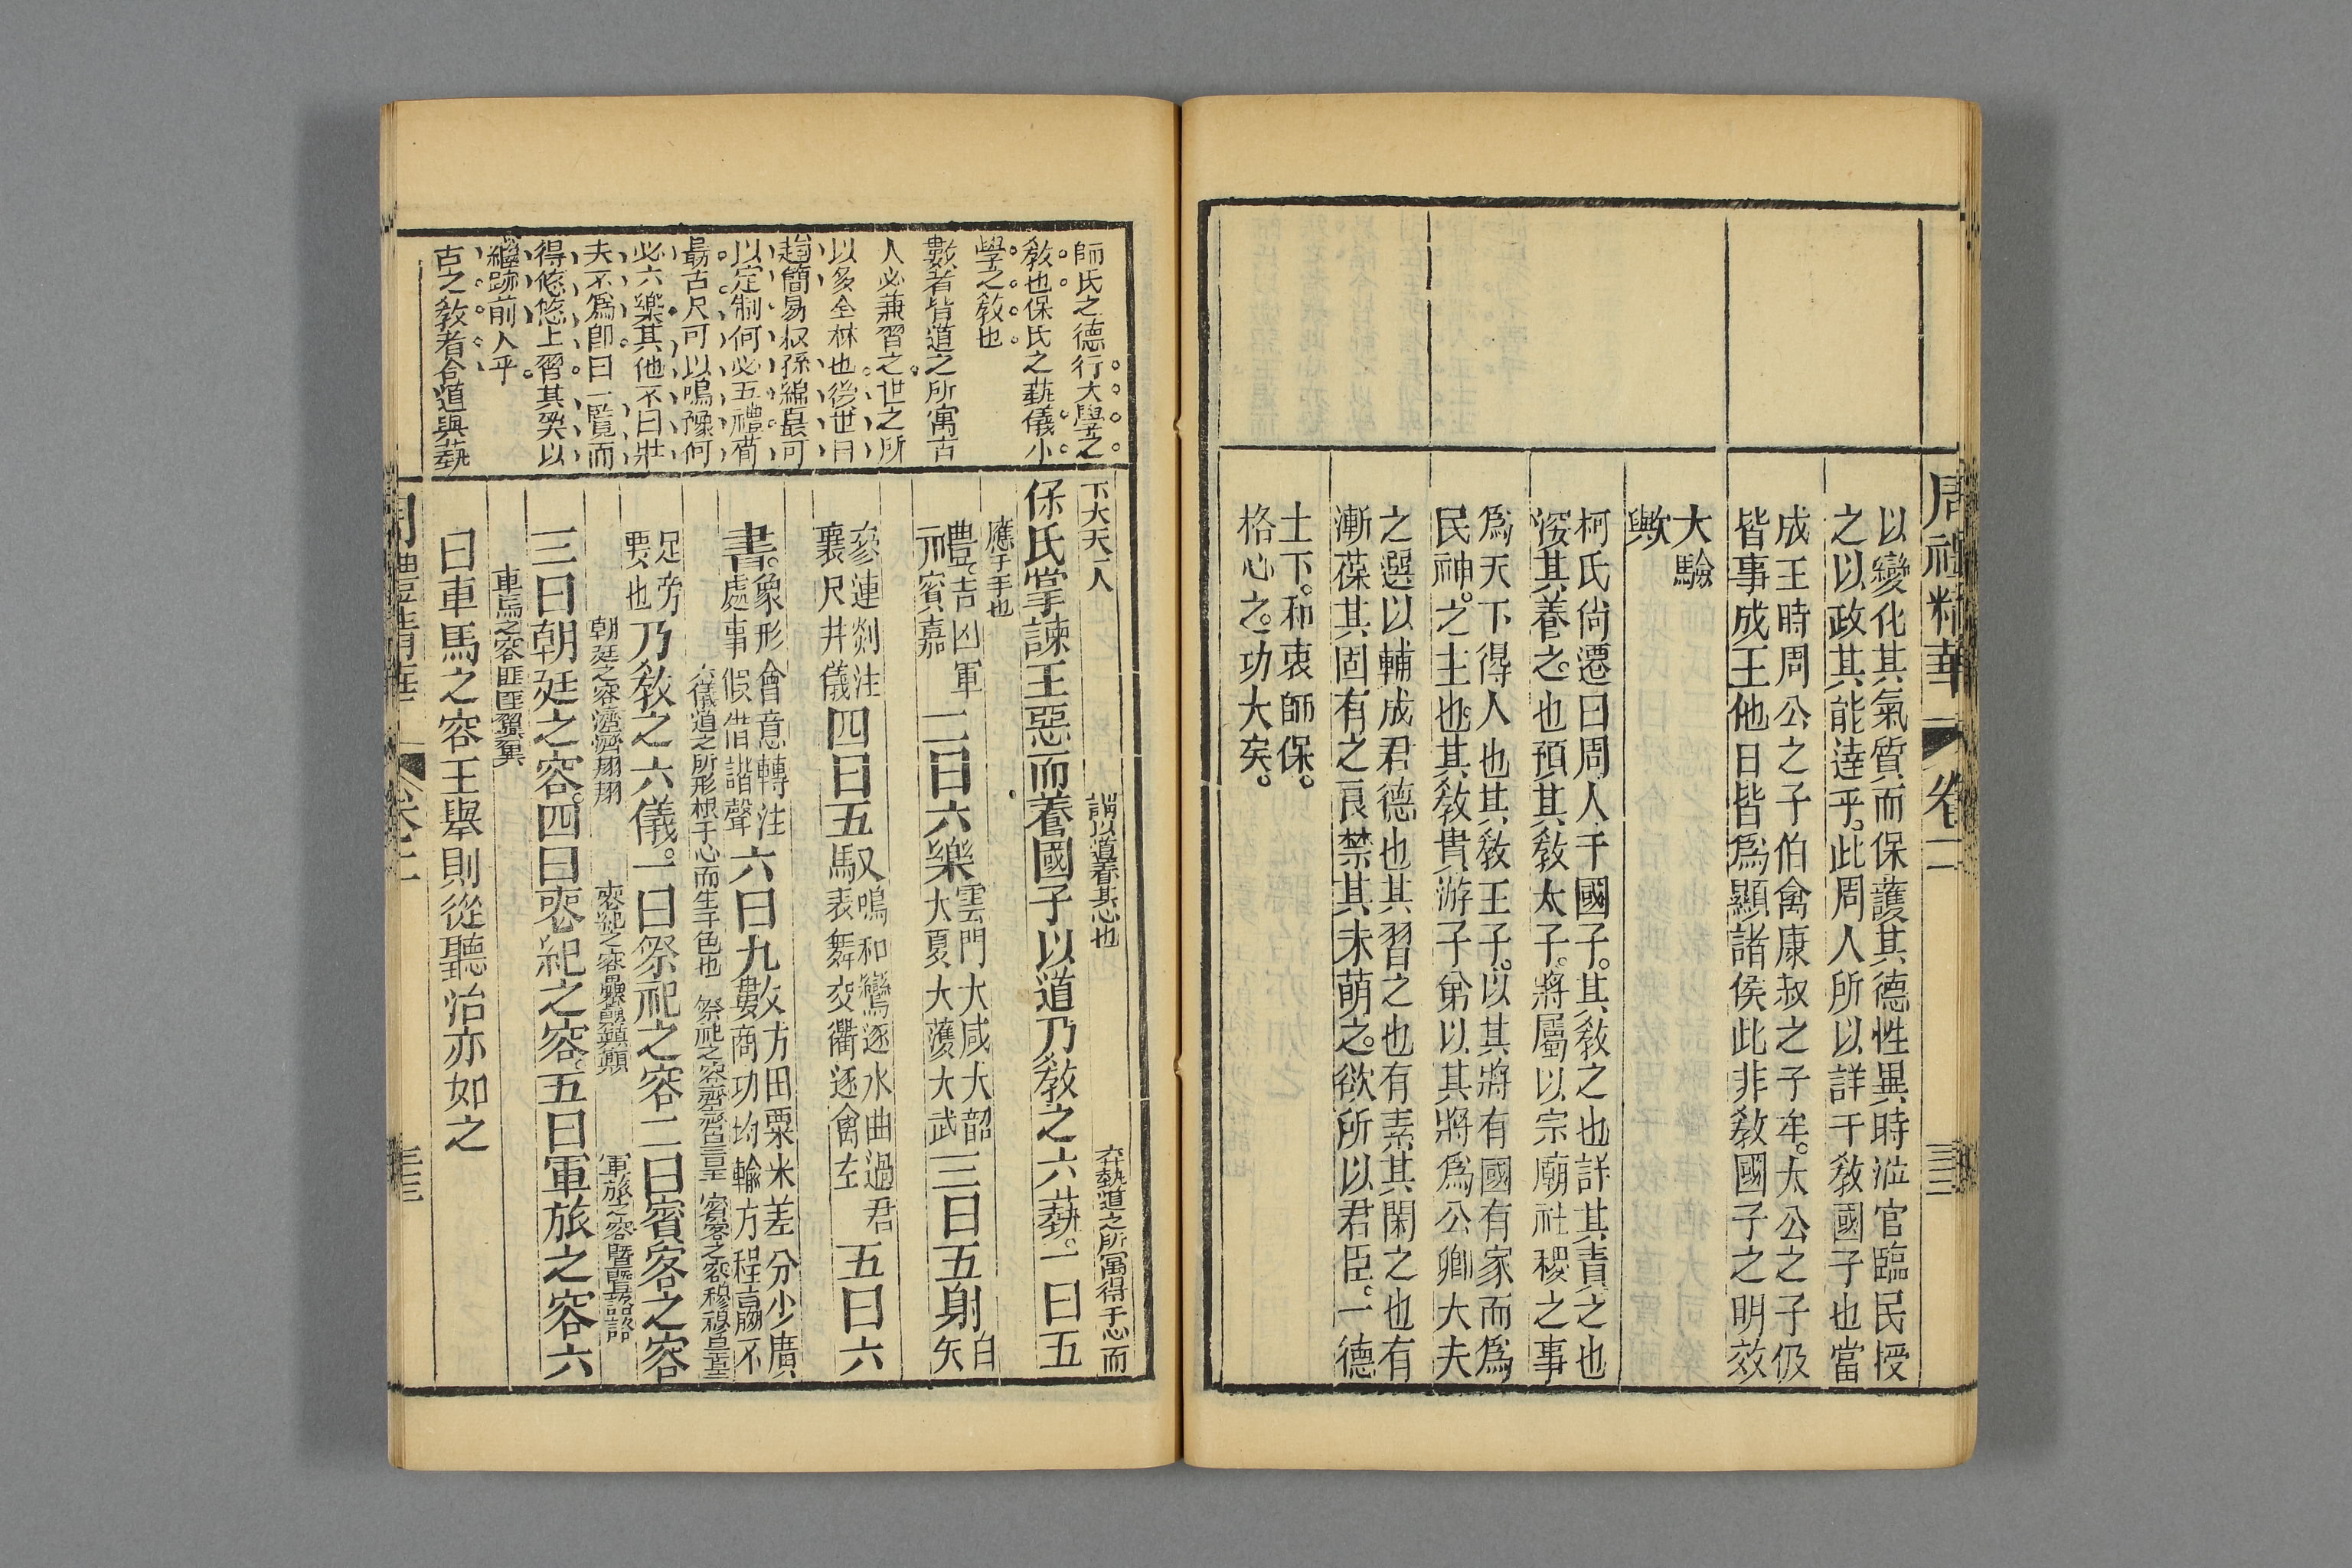 周禮精華
卷二
三三
以變化其氣質而保護其德性異時涖官臨民授
之以政其能達乎此周人所以詳于教國子也當
成王時周公之子伯禽康叔之子牟太公之子伋
皆事成王他日皆爲顯諸侯此非教國子之明效
大驗
歟
柯氏尙遷曰周人于國子其敎之也詳其責之也
深其養之也預其敎太子將屬以宗廟社稷之事
爲天下得人也其敎王子以其將有國有家而爲
民神之主也其敎貴游子弟以其將爲公卿大夫
之選以輔成君德也其習之也有素其閑之也有
漸葆其固有之良禁其未萌之欲所以君臣一德
上下和衷師保
格心之功大矣
師氏之德行大學之
敎也保氏之藝儀小
學之敎也
數者皆道之所寓古
人必兼習之世之所
以多全林也後世日
趨簡易叔孫綿蕞可
以定制何必五禮荀
朂古尺可以鳴豫何
必六樂其他不曰壯
夫不爲卽曰一覧而
得悠悠上習其奚以
繼跡前人乎
古之敎者合道與藝
下大夫一人
謂以道養其心也
存藝道之所寓得于心而
保氏掌諫王惡而養國子以道乃敎之六藝一曰五
應于手也
禮吉凶軍
賓嘉
二曰六樂
雲門大咸大韶
大夏大濩大武
三曰五射
白
矢
參連剡注
襄尺井儀
四曰五馭
鳴和鸞逐水曲過君
表舞交衢逐禽左
五曰六
書
象形會意轉注
處事假借諧聲
六曰九數
方田粟米差分少廣
商功均輸方程嬴不
足旁
要也
六儀道之所形根于心而生于色也
祭祀之容齊齊皇皇
賓客之容穆穆皇皇
乃敎之六儀一曰祭祀之容二曰賓客之容
朝廷之容濟濟翔翔
喪紀之容纍纍顚顚
軍旅之容曁曁詻詻
三曰朝廷之容四曰喪紀之容五曰軍旅之容六
車馬之容匪匪翼翼
曰車馬之容王舉則從聽治亦如之
卷二
三三